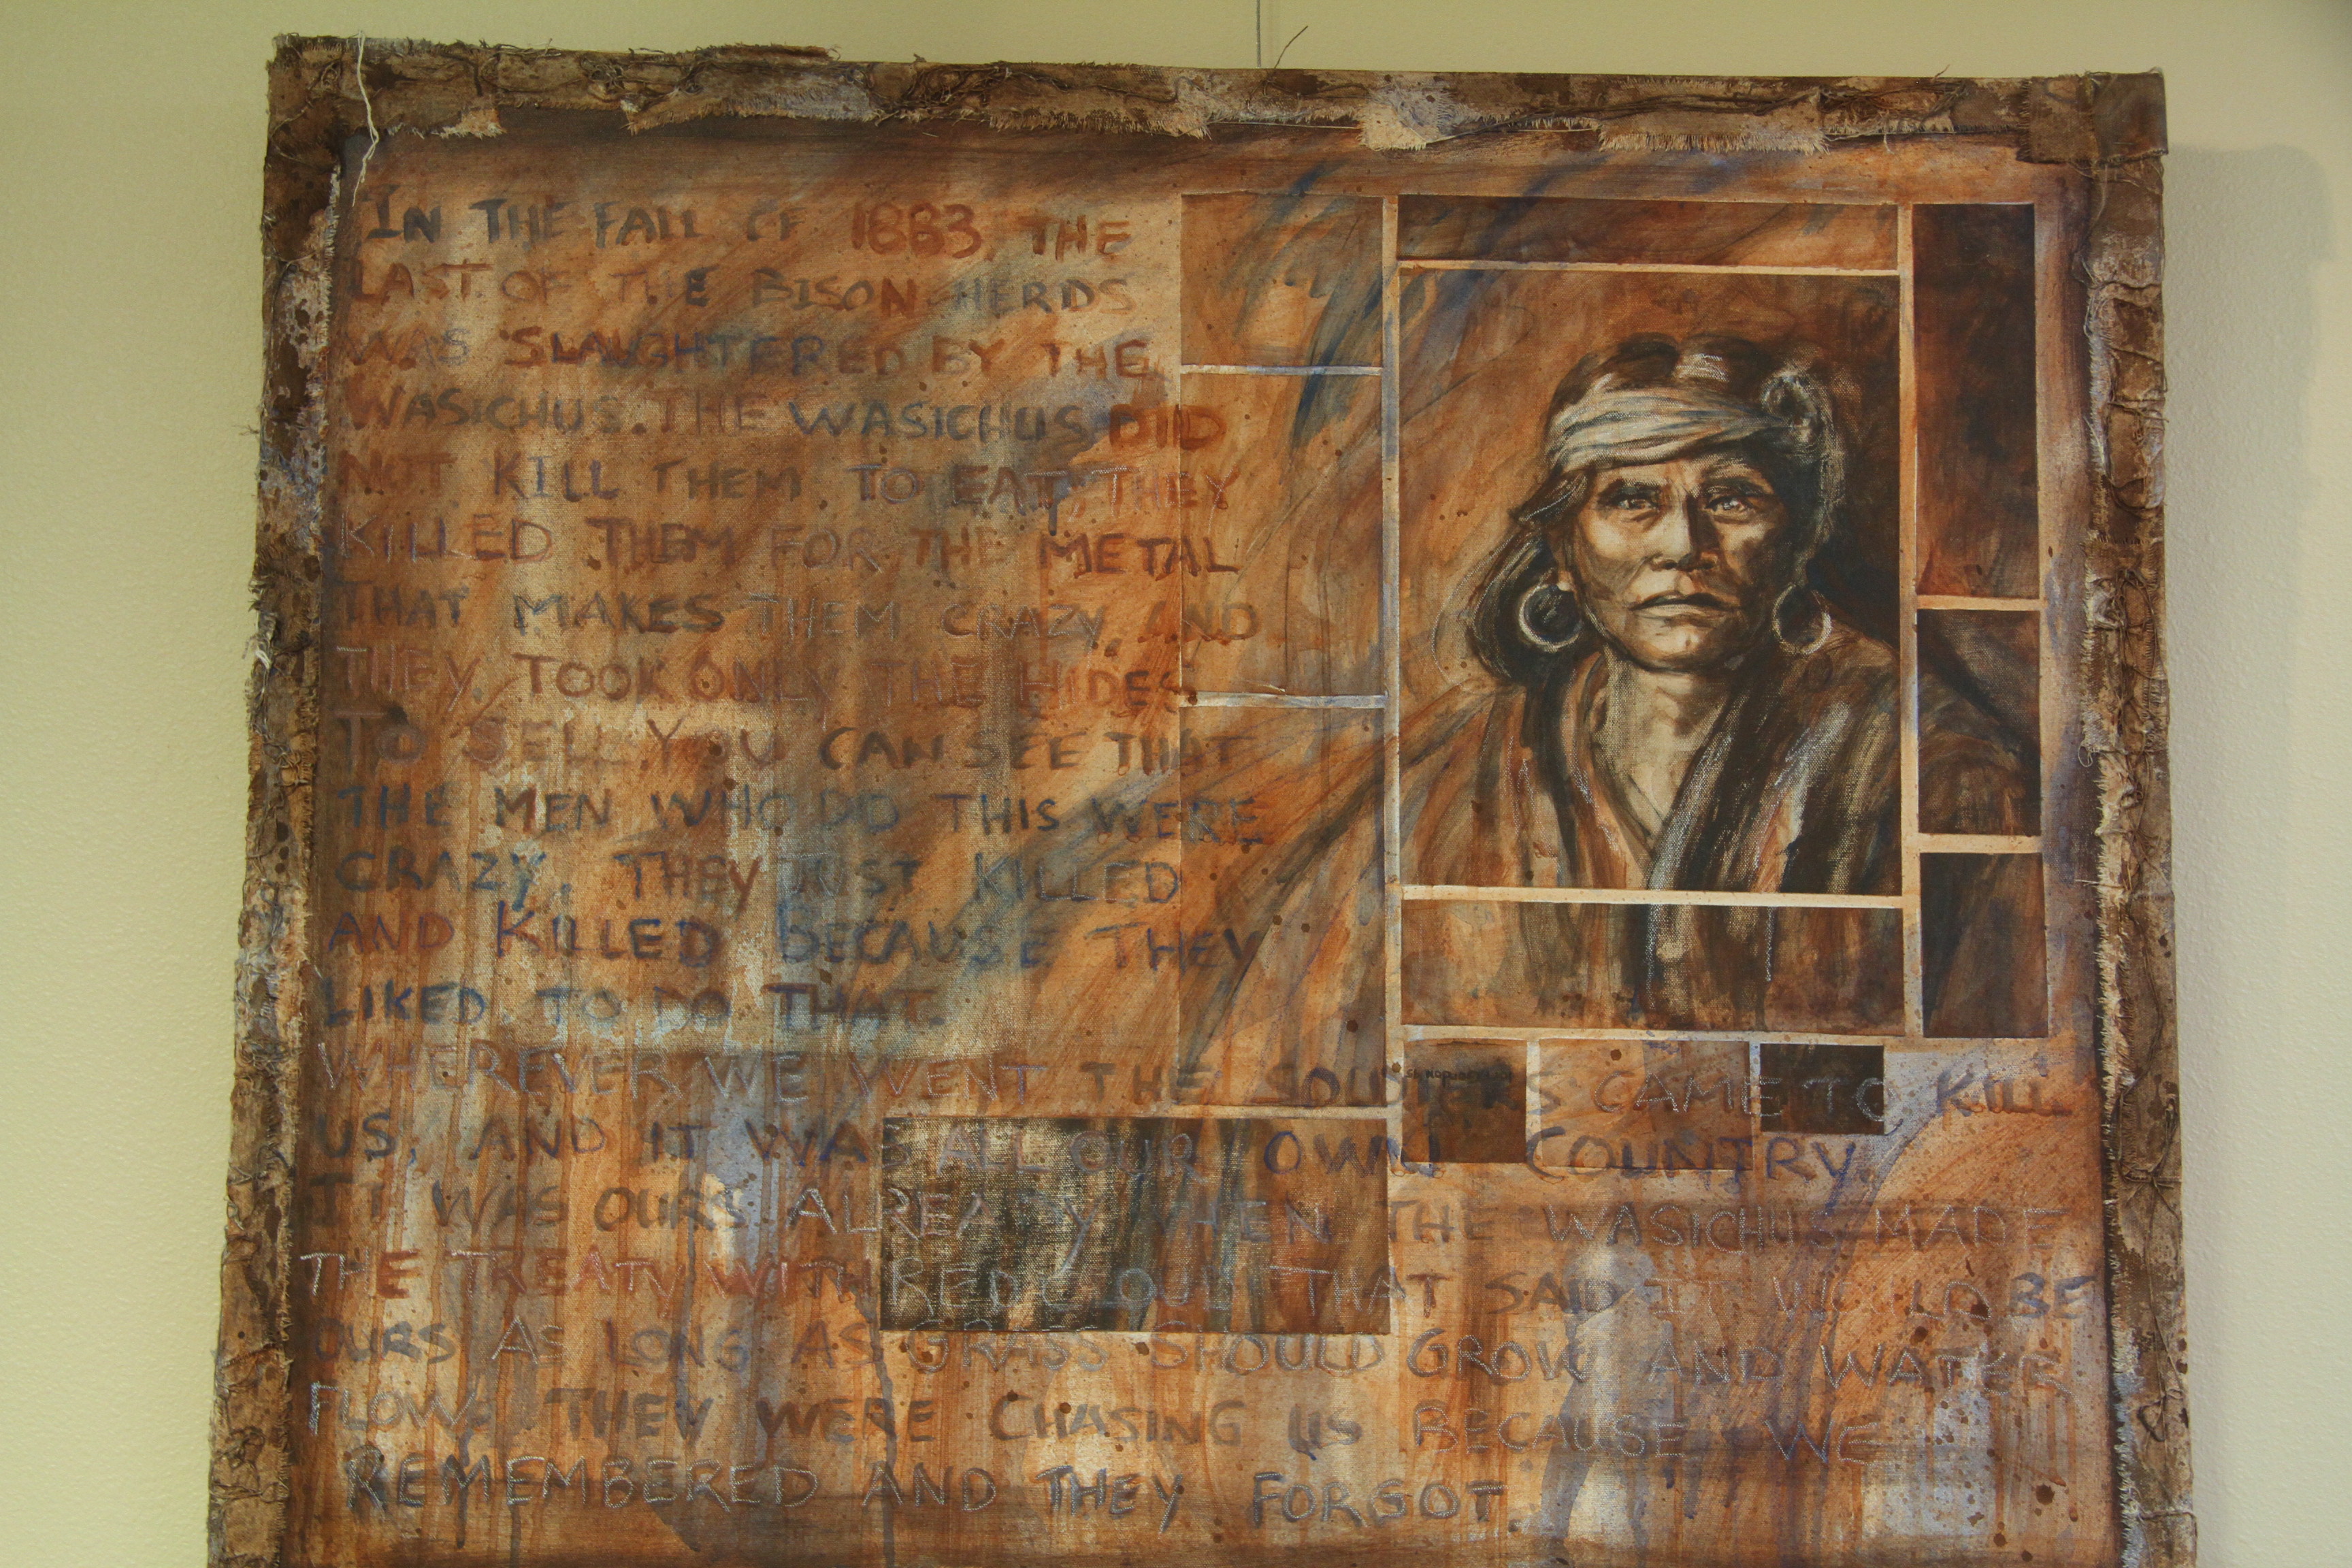 IN THE FALL OF 1883, THE
LAST OF THE BISON HERDS
WAS SLAUGHTERED BY THE
WASICHUS. THE WASICHUS DID
NOT KILL THEM TO EAT, THEY
KILLED THEM FOR THE METAL
THAT MAKES THEM CRAZY, AND
THEY TOOK ONLY THE HIDES
TO SELL. YOU CAN SEE THAT
THE MEN WHO DO THIS WERE
CRAZY. THEY JUST KILLED
AND KILLED BECAUSE THEY
LIKED TO DO THAT.
WHEREVER WE WENT THE SOLDIERS CAME TO KILL
US, AND IT WAS ALL OUR OWN COUNTRY.
IT WAS OURS ALREADY WHEN THE WASICHUS MADE
THE TREATY WITH RED CLOUD THAT SAID IT WOULD BE
OURS AS LONG AS GRASS SHOULD GROW AND WATER
FLOW. THEY WERE CHASING US BECAUSE WE
REMEMBERED AND THEY FORGOT.